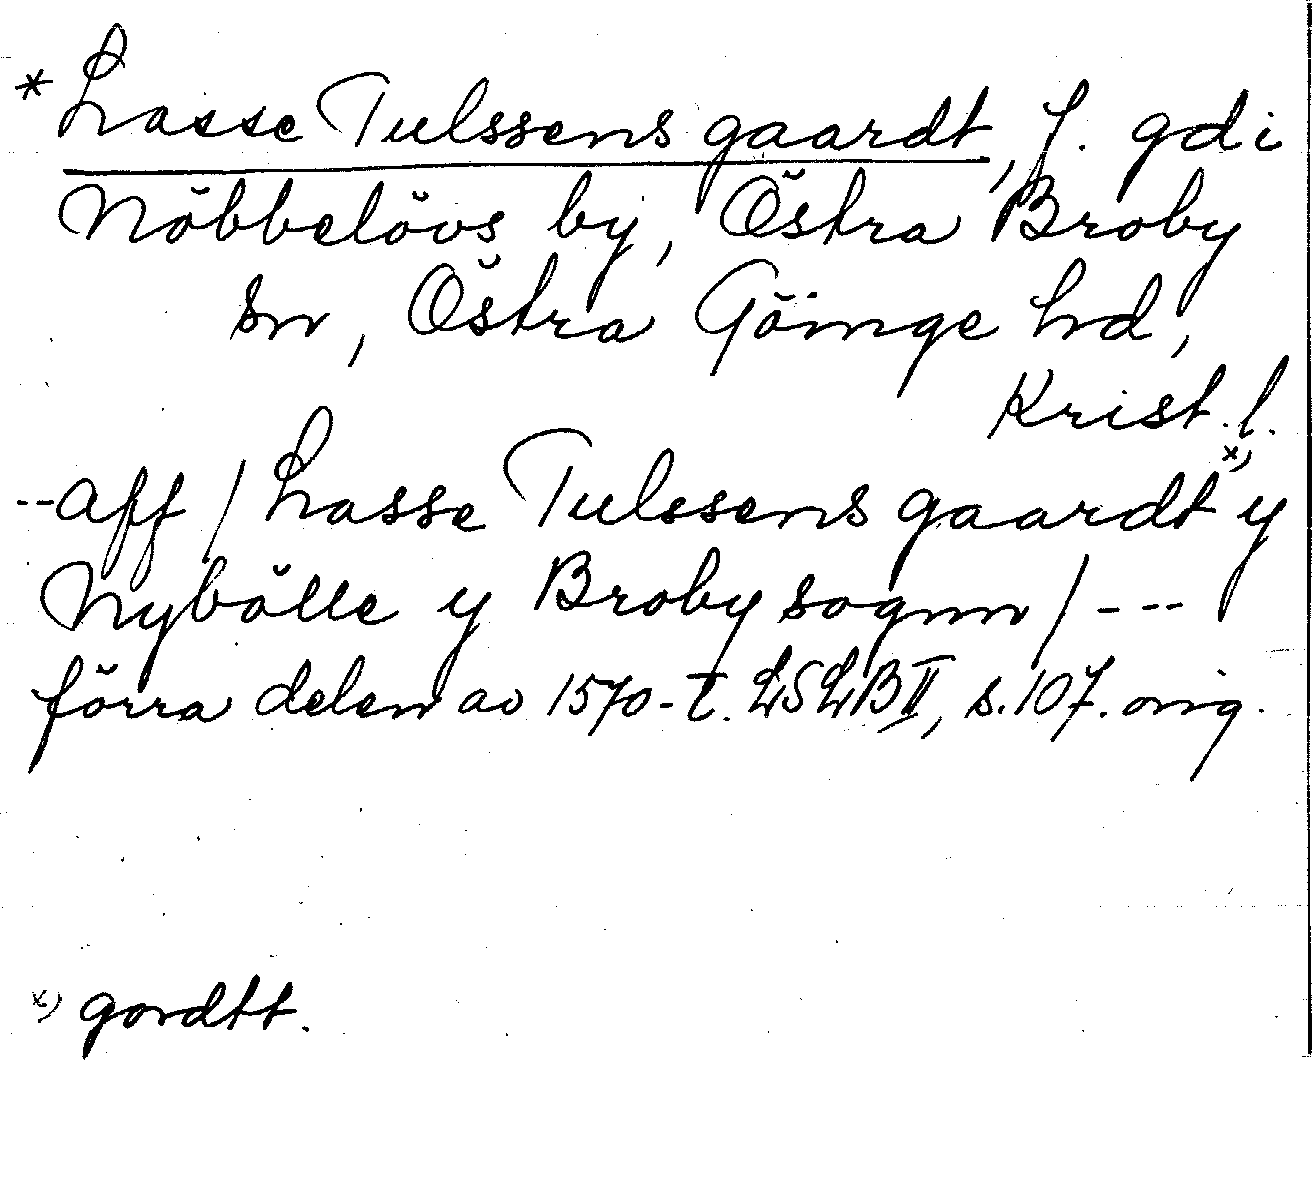 * Lasse Tulssens gaardt, f. gd i
Nöbbelövs by, Östra Broby
sn, Östra Göinge hd,
Krist. l.
-- aff / Lasse Tulssens gaardt x) y
Nybölle y Broby sognn / ---
förra delen av 1570-t. LSLB II, s. 107. orig.
x) gordtt.